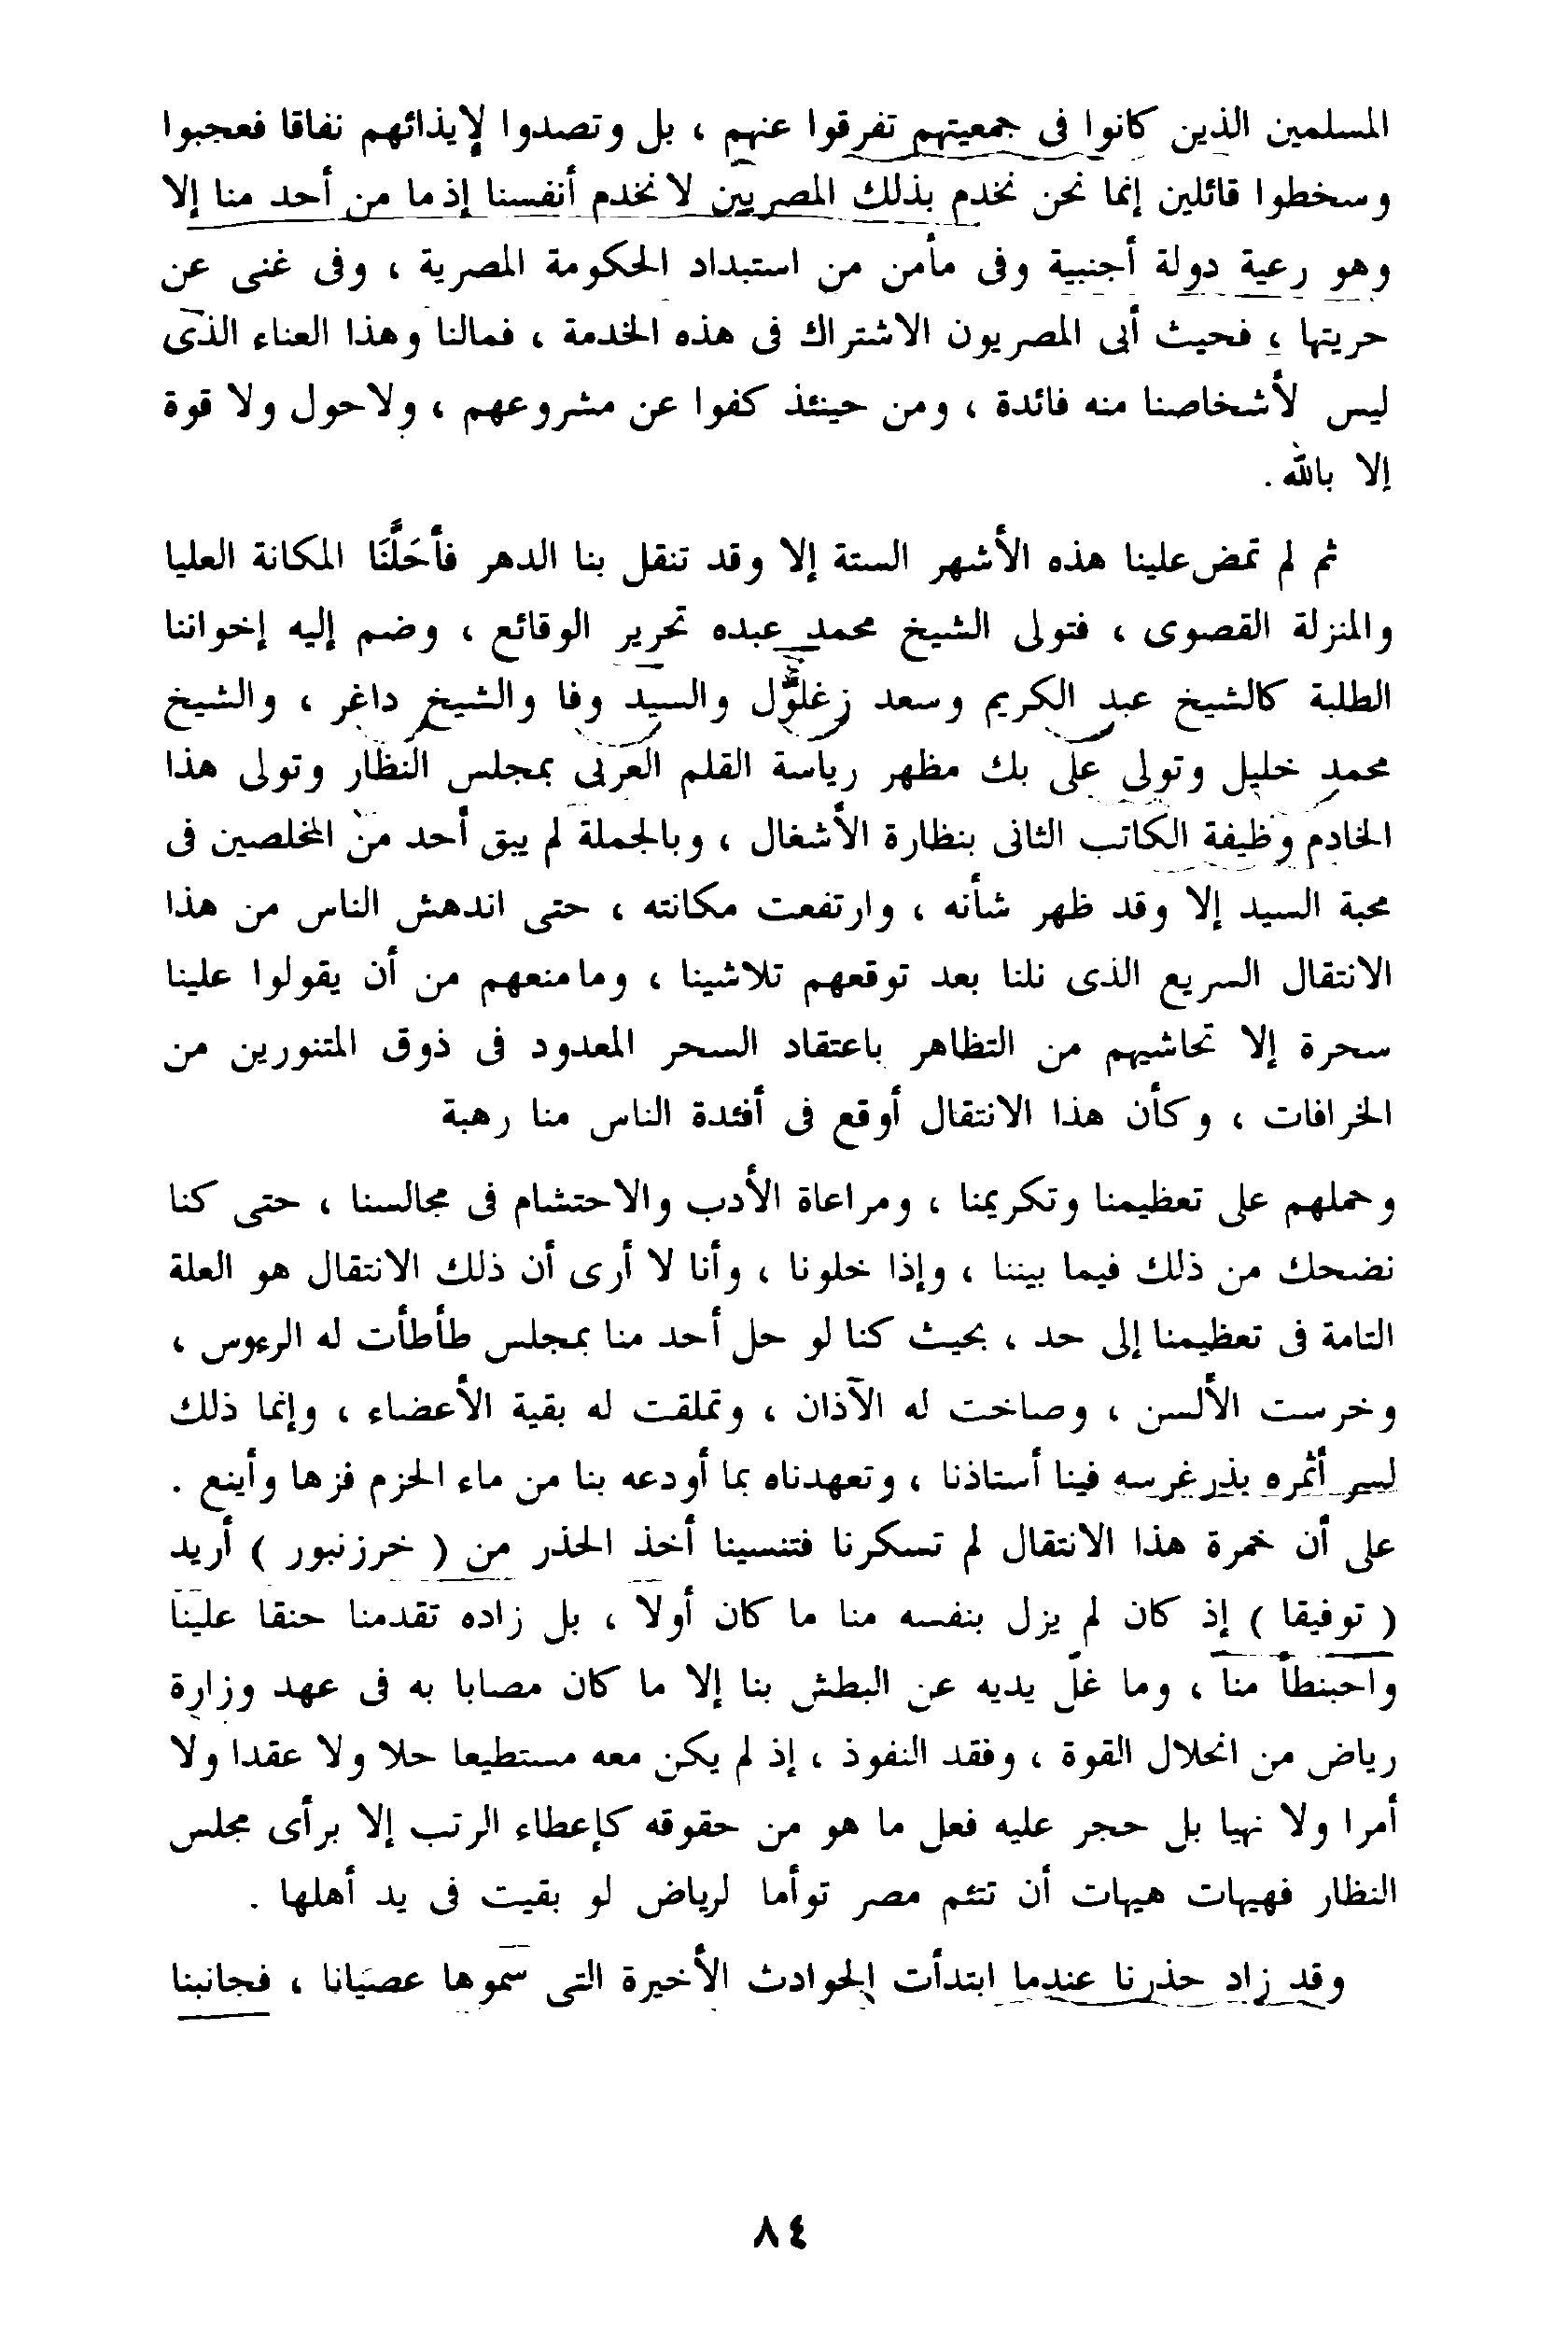 المسلمين الذين كانوا فى جمعيتهم تفرقوا عنهم ، بل وتصدوا لإيذائهم نفاقا فعجبوا
وسخطوا قائلين إنما نحن نخدم بذلك المصريين لا نخدم أنفسنا إذ ما من أحد منا إلا
وهو رعية دولة أجنبية وفى مأمن من استبداد الحكومة المصرية ، وفى غنى عن
حريتها ، فحيث أبى المصريون الاشتراك فى هذه الخدمة ، فمالنا وهذا العناء الذى
ليس لأشخاصنا منه فائدة ، ومن حينئذ كفوا عن مشروعهم ، ولا حول ولا قوة
إلا بالله .
ثم لم تمض علينا هذه الأشهر الستة إلا وقد تنقل بنا الدهر فأحَلَّنَا المكانة العليا
والمنزلة القصوى ، فتولى الشيخ محمد عبده تحرير الوقائع ، وضم إليه إخواننا
الطلبة كالشيخ عبد الكريم وسعد زغلول والسيد وفا والشيخ داغر ، والشيخ
محمد خليل وتولى على بك مظهر رياسة القلم العربى بمجلس النظار وتولى هذا
الخادم وظيفة الكاتب الثانى بنظارة الأشغال ، وبالجملة لم يبق أحد من المخلصين فى
محبة السيد إلا وقد ظهر شأنه ، وارتفعت مكانته ، حتى اندهش الناس من هذا
الانتقال السريع الذى نلنا بعد توقعهم تلاشينا ، وما منعهم من أن يقولوا علينا
سحرة إلا تحاشيهم من التظاهر باعتقاد السحر المعدود فى ذوق المتنورين من
الخرافات ، وكأن هذا الانتقال أوقع فى أفئدة الناس منا رهبة
وحملهم على تعظيمنا وتكريمنا ، ومراعاة الأدب والاحتشام فى مجالسنا ، حتى كنا
نضحك من ذلك فيما بيننا ، وإذا خلونا ، وأنا لا أرى أن ذلك الانتقال هو العلة
التامة فى تعظيمنا إلى حد ، بحيث كنا لو حل أحد منا بمجلس طأطأت له الرءوس ،
وخرست الألسن ، وصاخت له الآذان ، وتملقت له بقية الأعضاء ، وإنما ذلك
لسر أثمره بذر غرسه فينا أستاذنا ، وتعهدناه بما أودعه بنا من ماء الحزم فزها وأينع .
على أن خمرة هذا الانتقال لم تسكرنا فتنسينا أخذ الحذر من ( خرزنبور ) أريد
( توفيقا ) إذ كان لم يزل بنفسه منا ما كان أولا ، بل زاده تقدمنا حنقا علينا
واحبنطأ منا ، وما غلّ يديه عن البطش بنا إلا ما كان مصابا به فى عهد وزارة
رياض من انحلال القوة ، وفقد النفوذ ، إذ لم يكن معه مستطيعا حلا ولا عقدا ولا
أمرا ولا نهيا بل حجر عليه فعل ما هو من حقوقه كإعطاء الرتب إلا برأى مجلس
النظار فهيهات هيهات أن تتئم مصر توأما لرياض لو بقيت فى يد أهلها .
وقد زاد حذرنا عندما ابتدأت الحوادث الأخيرة التى سموها عصيانا ، فجانبنا
٨٤